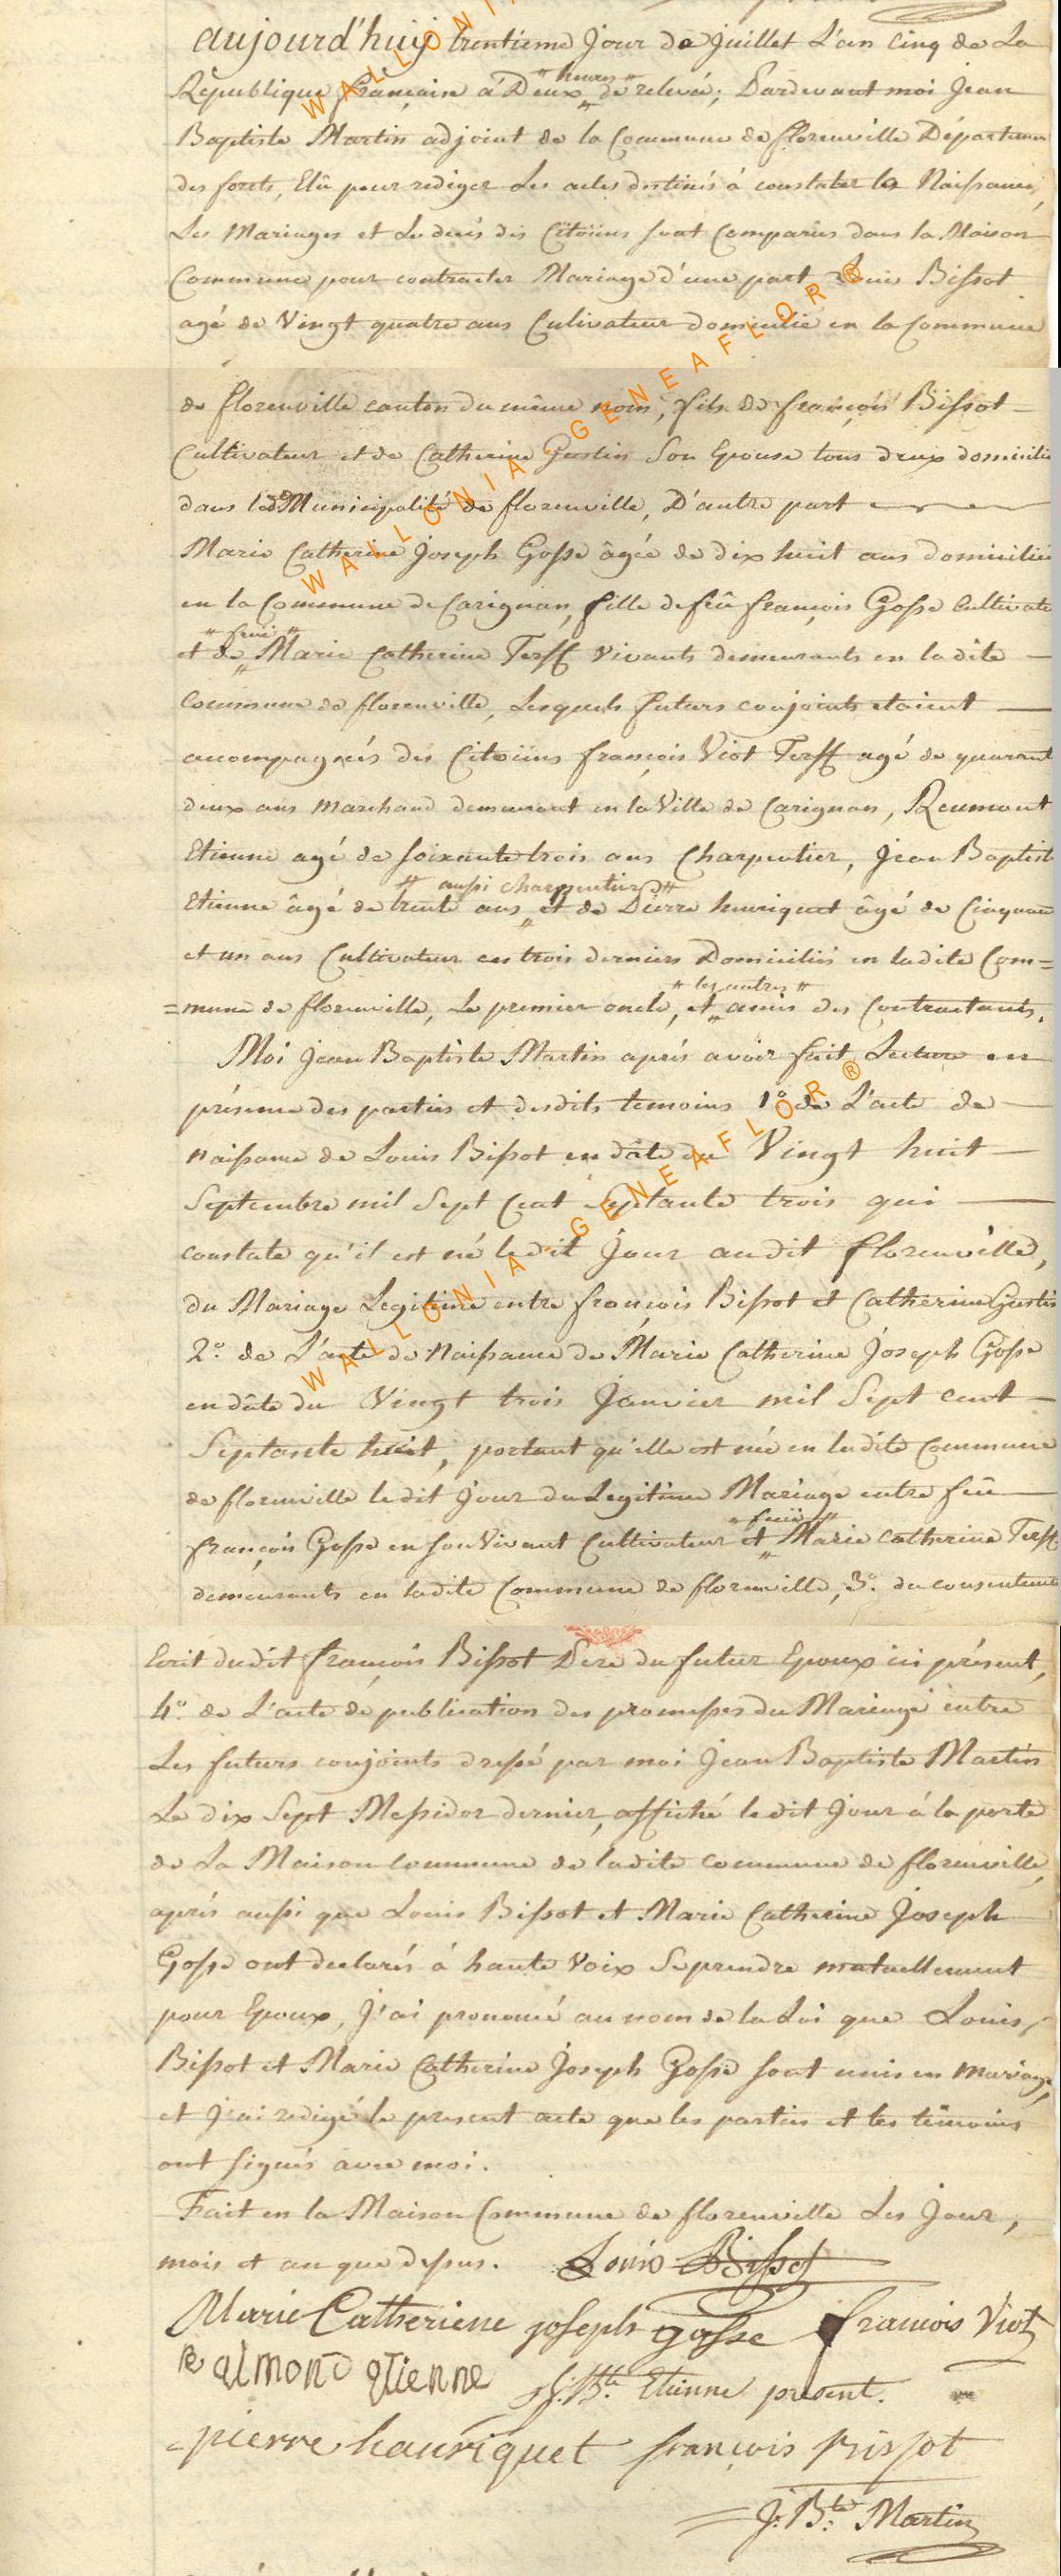 aujourd'huy trentieme Jour de Juillet L'an Cinq de La
République française à Deux "heures" de relevée; Pardevant moi Jean
Baptiste Martin adjoint de la Commune de florenville Départemen
des forets, Elû pour rediger Les actes destinés à constater les Naissances,
Les Mariages et Le decès des Citoïens sont Comparûs dans la Maison
Commune pour contracter Mariage d'une part Louis Bissot
agé de Vingt quatre ans Cultivateur domicilié en la Commune
de florenville canton du même nom, fils de françois Bissot
Cultivateur et de Catherine Gustin Son Epouse tous deux domicilié
dans la de Municipalité de florenville, D'autre part
Marie Catherine Joseph Gosse âgée de dix huit ans domiciliée
en la Commune de Carignan, fille de feû françois Gosse Cultivate
et de Marie Catherine Terff Vivants demeurants en ladite
Commune de florenville, Lesquels futurs conjoints etoient
accompagnés des Citoïens françois Viot Terff agé de quarant
deux ans marchand demeurant en la Ville de Carignan, Reumont
Etienne agé de soixante trois ans Charpentier, Jean Baptiste
# aussi charpentier #
Etienne âgé de trente ans et de Pierre henriquet âgé de Cinquan
et un ans Cultivateur ces trois derniers Domiciliés en ladite Com=
# les autres #
=mune de florenville, Le premier oncle, et amis des Contractants.
Moi Jean Baptiste Martin après avoir fait Lecture en
présence des parties et desdits temoins 1° de L'acte de
naissance de Louis Bissot en dâte du Vingt huit
Septembre mil Sept Cent Septante trois qui
constate qu'il est né ledit Jour audit florenville,
du Mariage Legitime entre françois Bissot et Catherine Gustin
2° de L'acte de Naissance de Marie Catherine Joseph Gosse
en dâte du Vingt trois Janvier mil Sept cent
Septante huit, portant qu'elle est née en ladite Commune
de florenville ledit Jour du Legitime Mariage entre feû
françois Gosse en son Vivant Cultivateur et Marie Catherine Terff
demeurants en ladite Commune de florenville, 3° du consenteme
Ecrit dudit françois Bissot Pere du futur Epoux ici présent,
4° de L'acte de publication des promesses du Mariage entre
Les futurs conjoints dressé par moi Jean Baptiste Martin
Le dix Sept Messidor dernier, affiché ledit Jour à la porte
de La Maison commune de ladite commune de florenville,
après aussi que Louis Bissot et Marie Catherine Joseph
Gosse ont declarés à haute Voix Se prendre mutuellement
pour Epoux, J'ai prononcé au nom de la Loi que Louis
Bissot et Marie Catherine Joseph Gosse sont unis en mariage,
et J'ai redigé le present acte que les parties et les têmoins
ont signés avec moi.
Fait en la Maison Commune de florenville Les Jour,
mois et an que dessus. Louis Bissot
Marie Catheriene joseph gosse francois Viot
Re almond etienne J. Bte Etienne présent.
pierre hanriquet françois bissot
J. Bte Martin
WALLONIA - GENEAFLOR®
WALLONIA - GENEAFLOR®